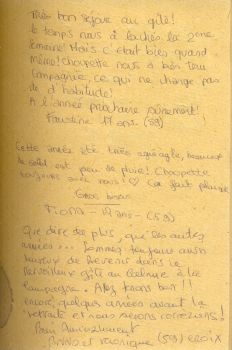 Très bon séjour au gîte!
le temps nous a lachés la 2eme
semaine! Mais c'était bien quand
même! Choupette nous a bien tenu
compagnie, ce qui ne change pas
d'habitude!
A l'année prochaine sûrement!
Faustine 17 ans. (59)
Cette année été très agréable, beaucoup
de soleil et peu de pluie! Choupette
toujours avec nous! ♡ Ça fait plaisir
Gros bisous
Fiona - 12 ans - (59)
Que dire de plus, que les autres
années... Sommes toujours aussi
heureux de revenir dans ce
merveilleux gîte au calme à la
campagne. Allez tenons bon!!
encore quelques années avant la
retraite et nous serons corréziens!
Bien Amicalement
et Monique (59) CROIX